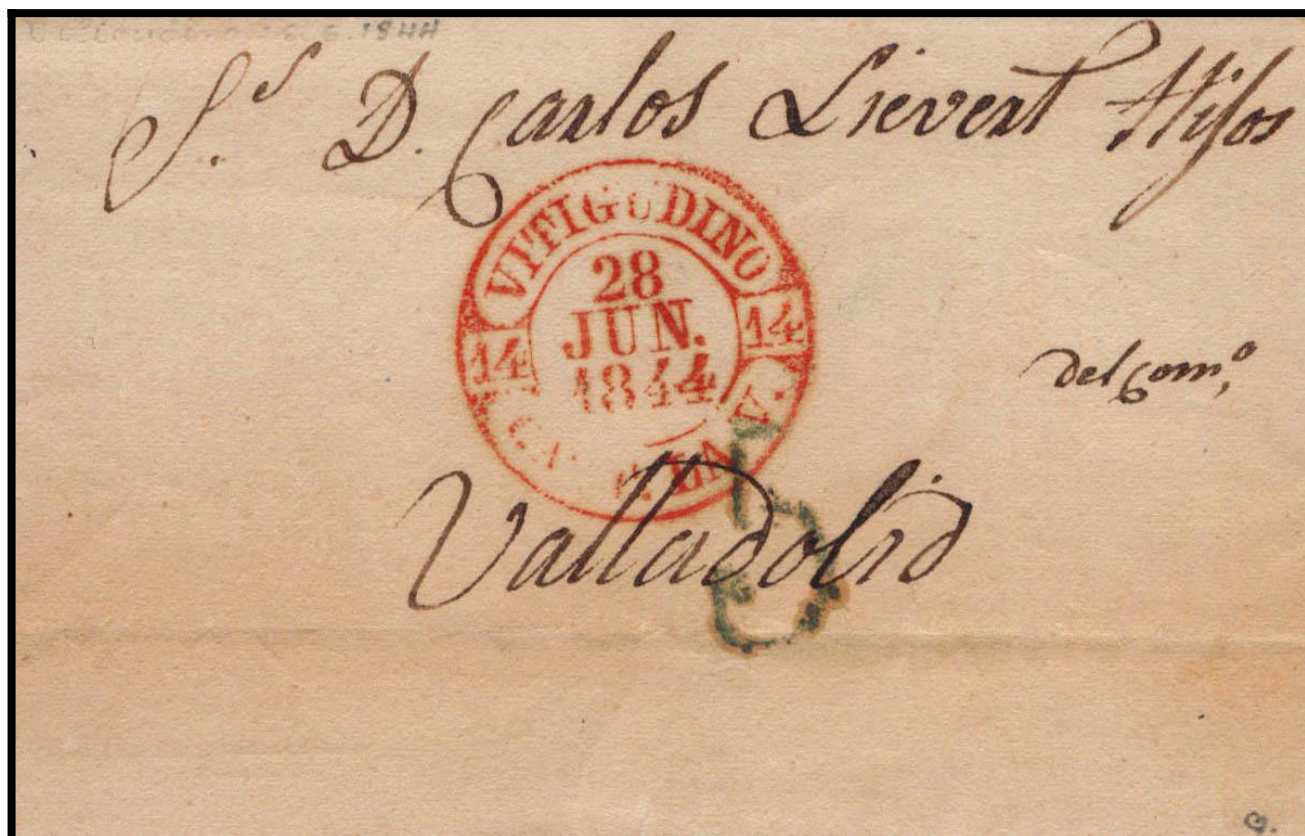 1844
S.ˢ D. Carlos Lievert Hijos
VITIGUDINO
28
JUN.
1844
14
14
del Com.º
Valladolid